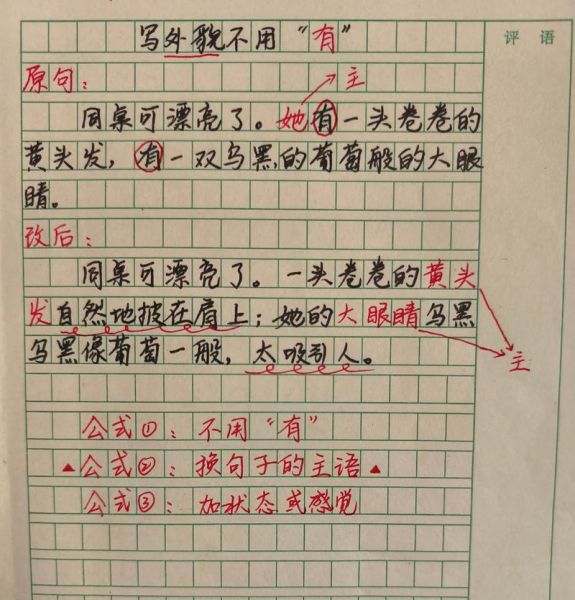 评语
写外貌不用“有”
原句：
主
同桌可漂亮了。她有一头卷卷的
黄头发，有一双乌黑的葡萄般的大眼
睛。
改后：
同桌可漂亮了。一头卷卷的黄头
发自然地披在肩上；她的大眼睛乌黑
乌黑像葡萄一般，太吸引人。
主
公式①：不用“有”
▲公式②：换句子的主语▲
公式③：加状态或感觉